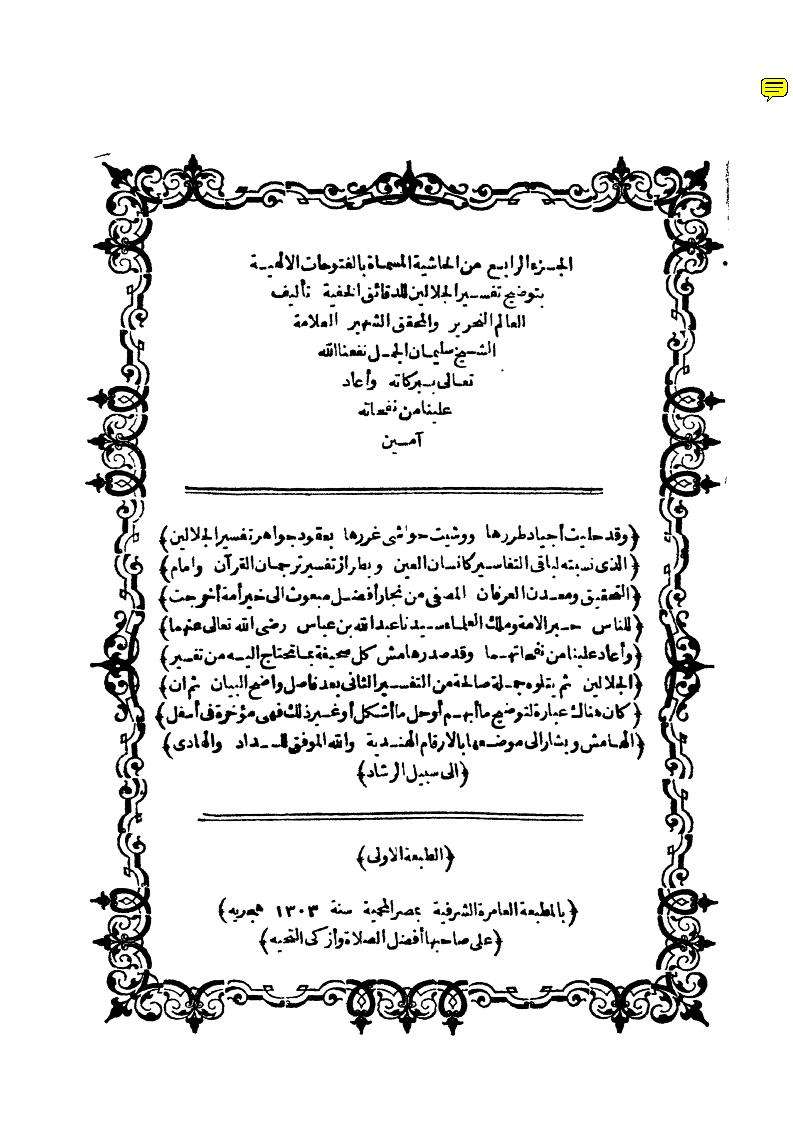 الجزء الرابع من الحاشية المسماة بالفتوحات الالهية
بتوضيح تفسير الجلالين للدقائق الخفية تأليف
العالم النحرير والمحقق الشهير العلامة
الشيخ سليمان الجمل نفعنا الله
تعالى ببركاته وأعاد
علينا من نفحاته
آمين
(وقد حليت أجياد طررها ووشيت حواشى غررها بعقود جواهر تفسير الجلالين)
(الذى نسبته لباقى التفاسير كانسان العين وبطراز تفسير ترجمان القرآن وامام)
(التحقيق ومعدن العرفان المصفى من نجار أفضل مبعوث الى خير أمة أخرجت)
(للناس حبر الامة وملك العلماء سيدنا عبد الله بن عباس رضى الله تعالى عنهما)
(وأعاد علينا من نفحاتهما وقد صدر هامش كل صحيفة بما تحتاج اليه من تفسير)
(الجلالين ثم يتلوه جملة صالحة من التفسير الثانى بعد فاصل واضح البيان ثم ان)
(كان هناك عبارة لتوضيح ما أبهم أو حل ما أشكل أو غير ذلك فهى مؤخرة فى أسفل)
(الهامش ويشار الى موضعها بالارقام الهندية والله الموفق للسداد والهادى)
(الى سبيل الرشاد)
(الطبعة الاولى)
(بالمطبعة العامرة الشرفية بمصر المحمية سنة ١٣٠٣ هجريه)
(على صاحبها أفضل الصلاة وأزكى التحيه)